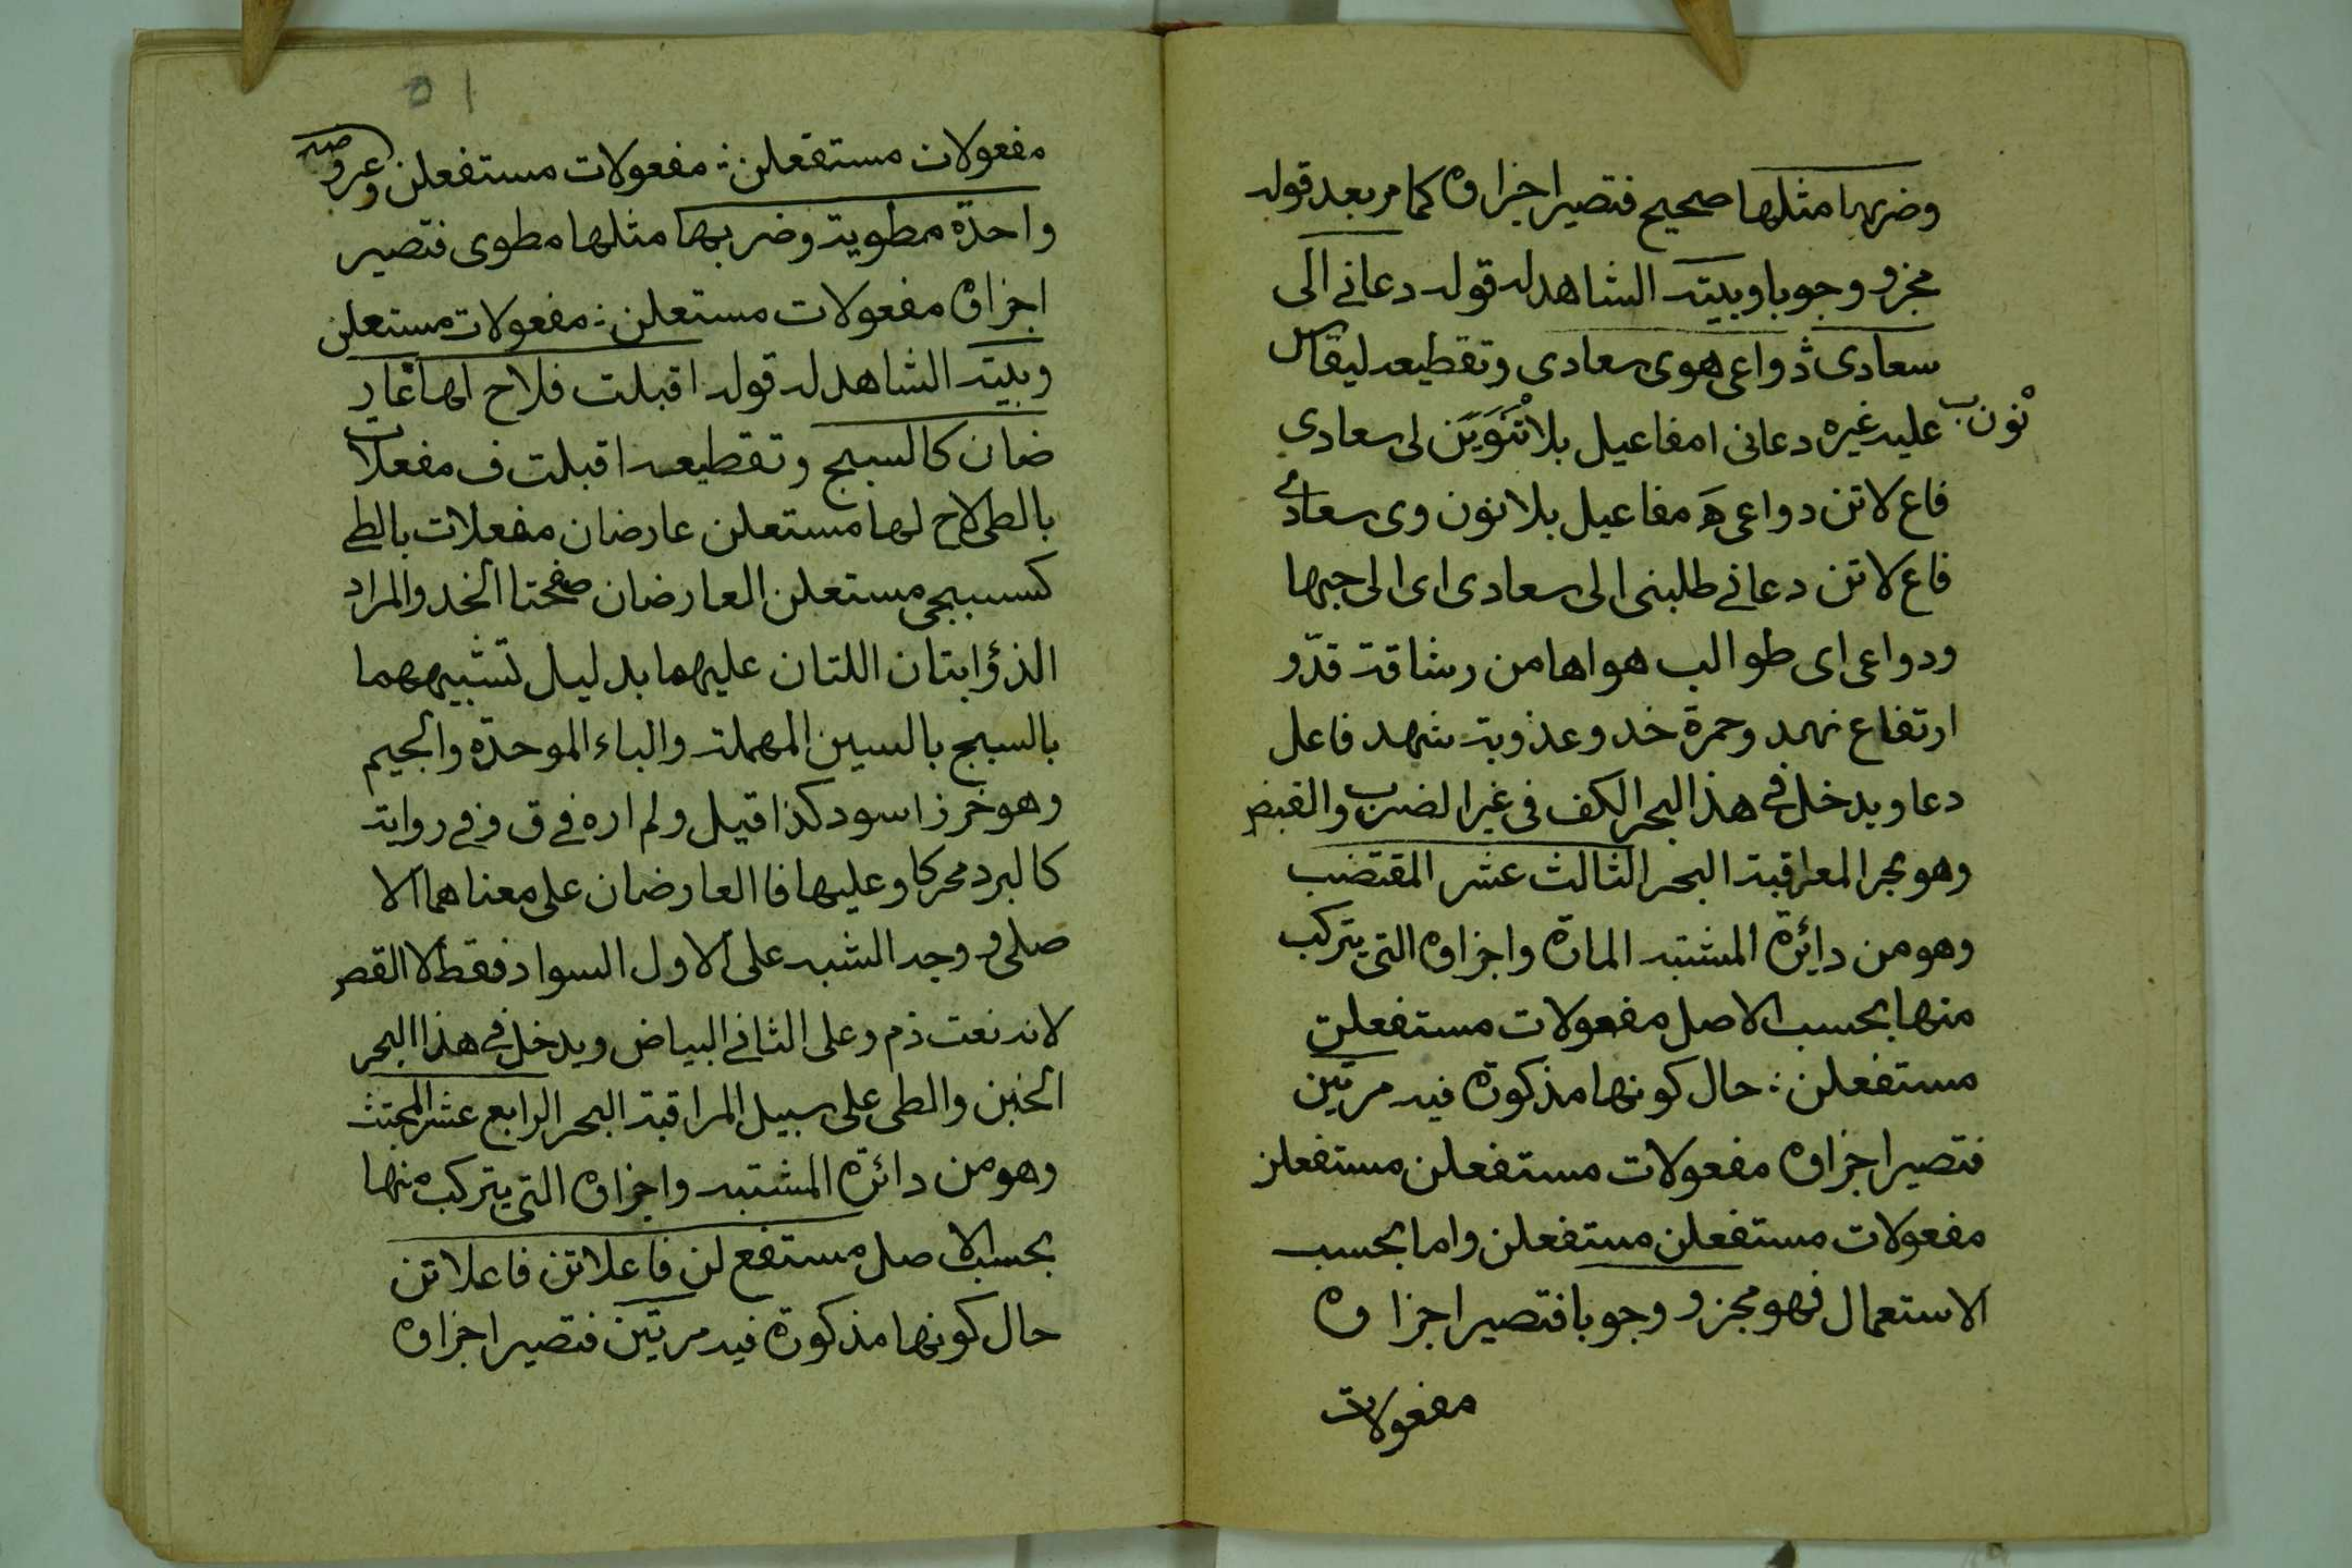 وضربها مثلها صحيح فتصير اجزاؤه كما مر بعد قوله
مجزو وجوبا وبيته الشاهد له قوله دعاني الى
سعادى دواعى هوى سعادى وتقطيعه ليقاس
نون
عليه غيره دعانى ا مفاعيل بلا تنوين لى سعادي
فاع لاتن دواعى هَ مفاعيل بلا نون وى سعادى
فاع لاتن دعاني طلبنى الى سعادى اى الى حبها
ودواعى اى طوالب هواها من رشاقة قدّ و
ارتفاع نهد وحمرة خد وعذوبة شهد فاعل
دعا ويدخل في هذا البحر الكف فى غير الضرب والقبض
وهو بحر المراقبة البحر الثالث عشر المقتضب
وهو من دايرة المشتبه المارة واجزاؤه التى يتركب
منها بحسب الاصل مفعولات مستفعلن
مستفعلن ؛ حال كونها مذكورة فيه مرتين
فتصير اجزاؤه مفعولات مستفعلن مستفعلن
مفعولات مستفعلن مستفعلن واما بحسب
الاستعمال فهو مجزو وجوبا فتصير اجزاؤه
مفعولات
٥١
مفعولات مستفعلن ؛ مفعولات مستفعلن وعروضه
واحدة مطوية وضربها مثلها مطوى فتصير
اجزاؤه مفعولات مستعلن ؛ مفعولات مستعلن
وبيته الشاهد له قوله اقبلت فلاح لها عار
ضان كالسبج وتقطيعه اقبلت ف مفعلات
بالطى لاح لها مستعلن عارضان مفعلات بالطي
كسسبجى مستعلن العارضان صفحتا الخد والمراد
الذؤابتان اللتان عليهما بدليل تشبيههما
بالسبج بالسين المهملة والباء الموحدة والجيم
وهو خرز اسود كذا قيل ولم اره في ق وفي رواية
كالبرد محركا وعليها فا العارضان على معناهما الا
صلى ووجه الشبه على الاول السواد فقط لا القصر
لانه نعت ذم وعلى الثاني البياض ويدخل في هذا البحر
الخبن والطى على سبيل المراقبة البحر الرابع عشر المجتث
وهو من دائرة المشتبه واجزاؤه التى يتركب منها
بحسب الاصل مستفع لن فاعلاتن فاعلاتن
حال كونها مذكورة فيه مرتين فتصير اجزاؤه